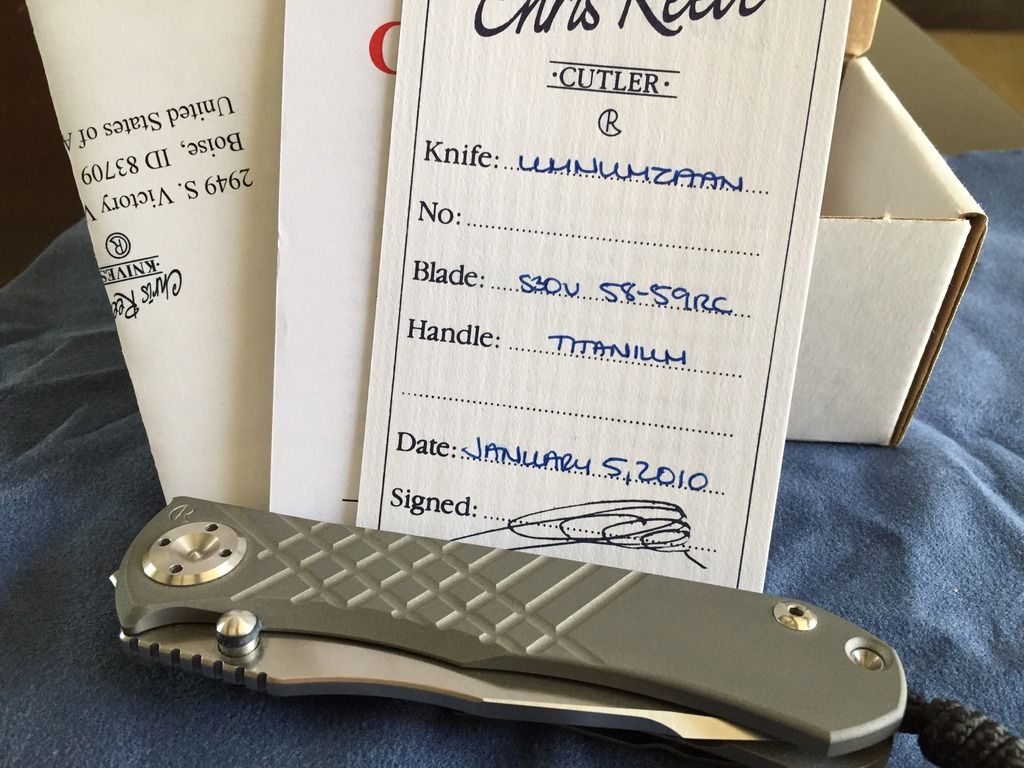 Chris Reeve
·CUTLER·
R
Knife: UMNUMZAAN
No:
Blade: S30V 58-59RC
Handle: TITANIUM
Date: JANUARY 5, 2010
Signed:
C
Chris Ree
·KNIVES
R
2949 S. Victory
Boise, ID 83709
United States of A
R